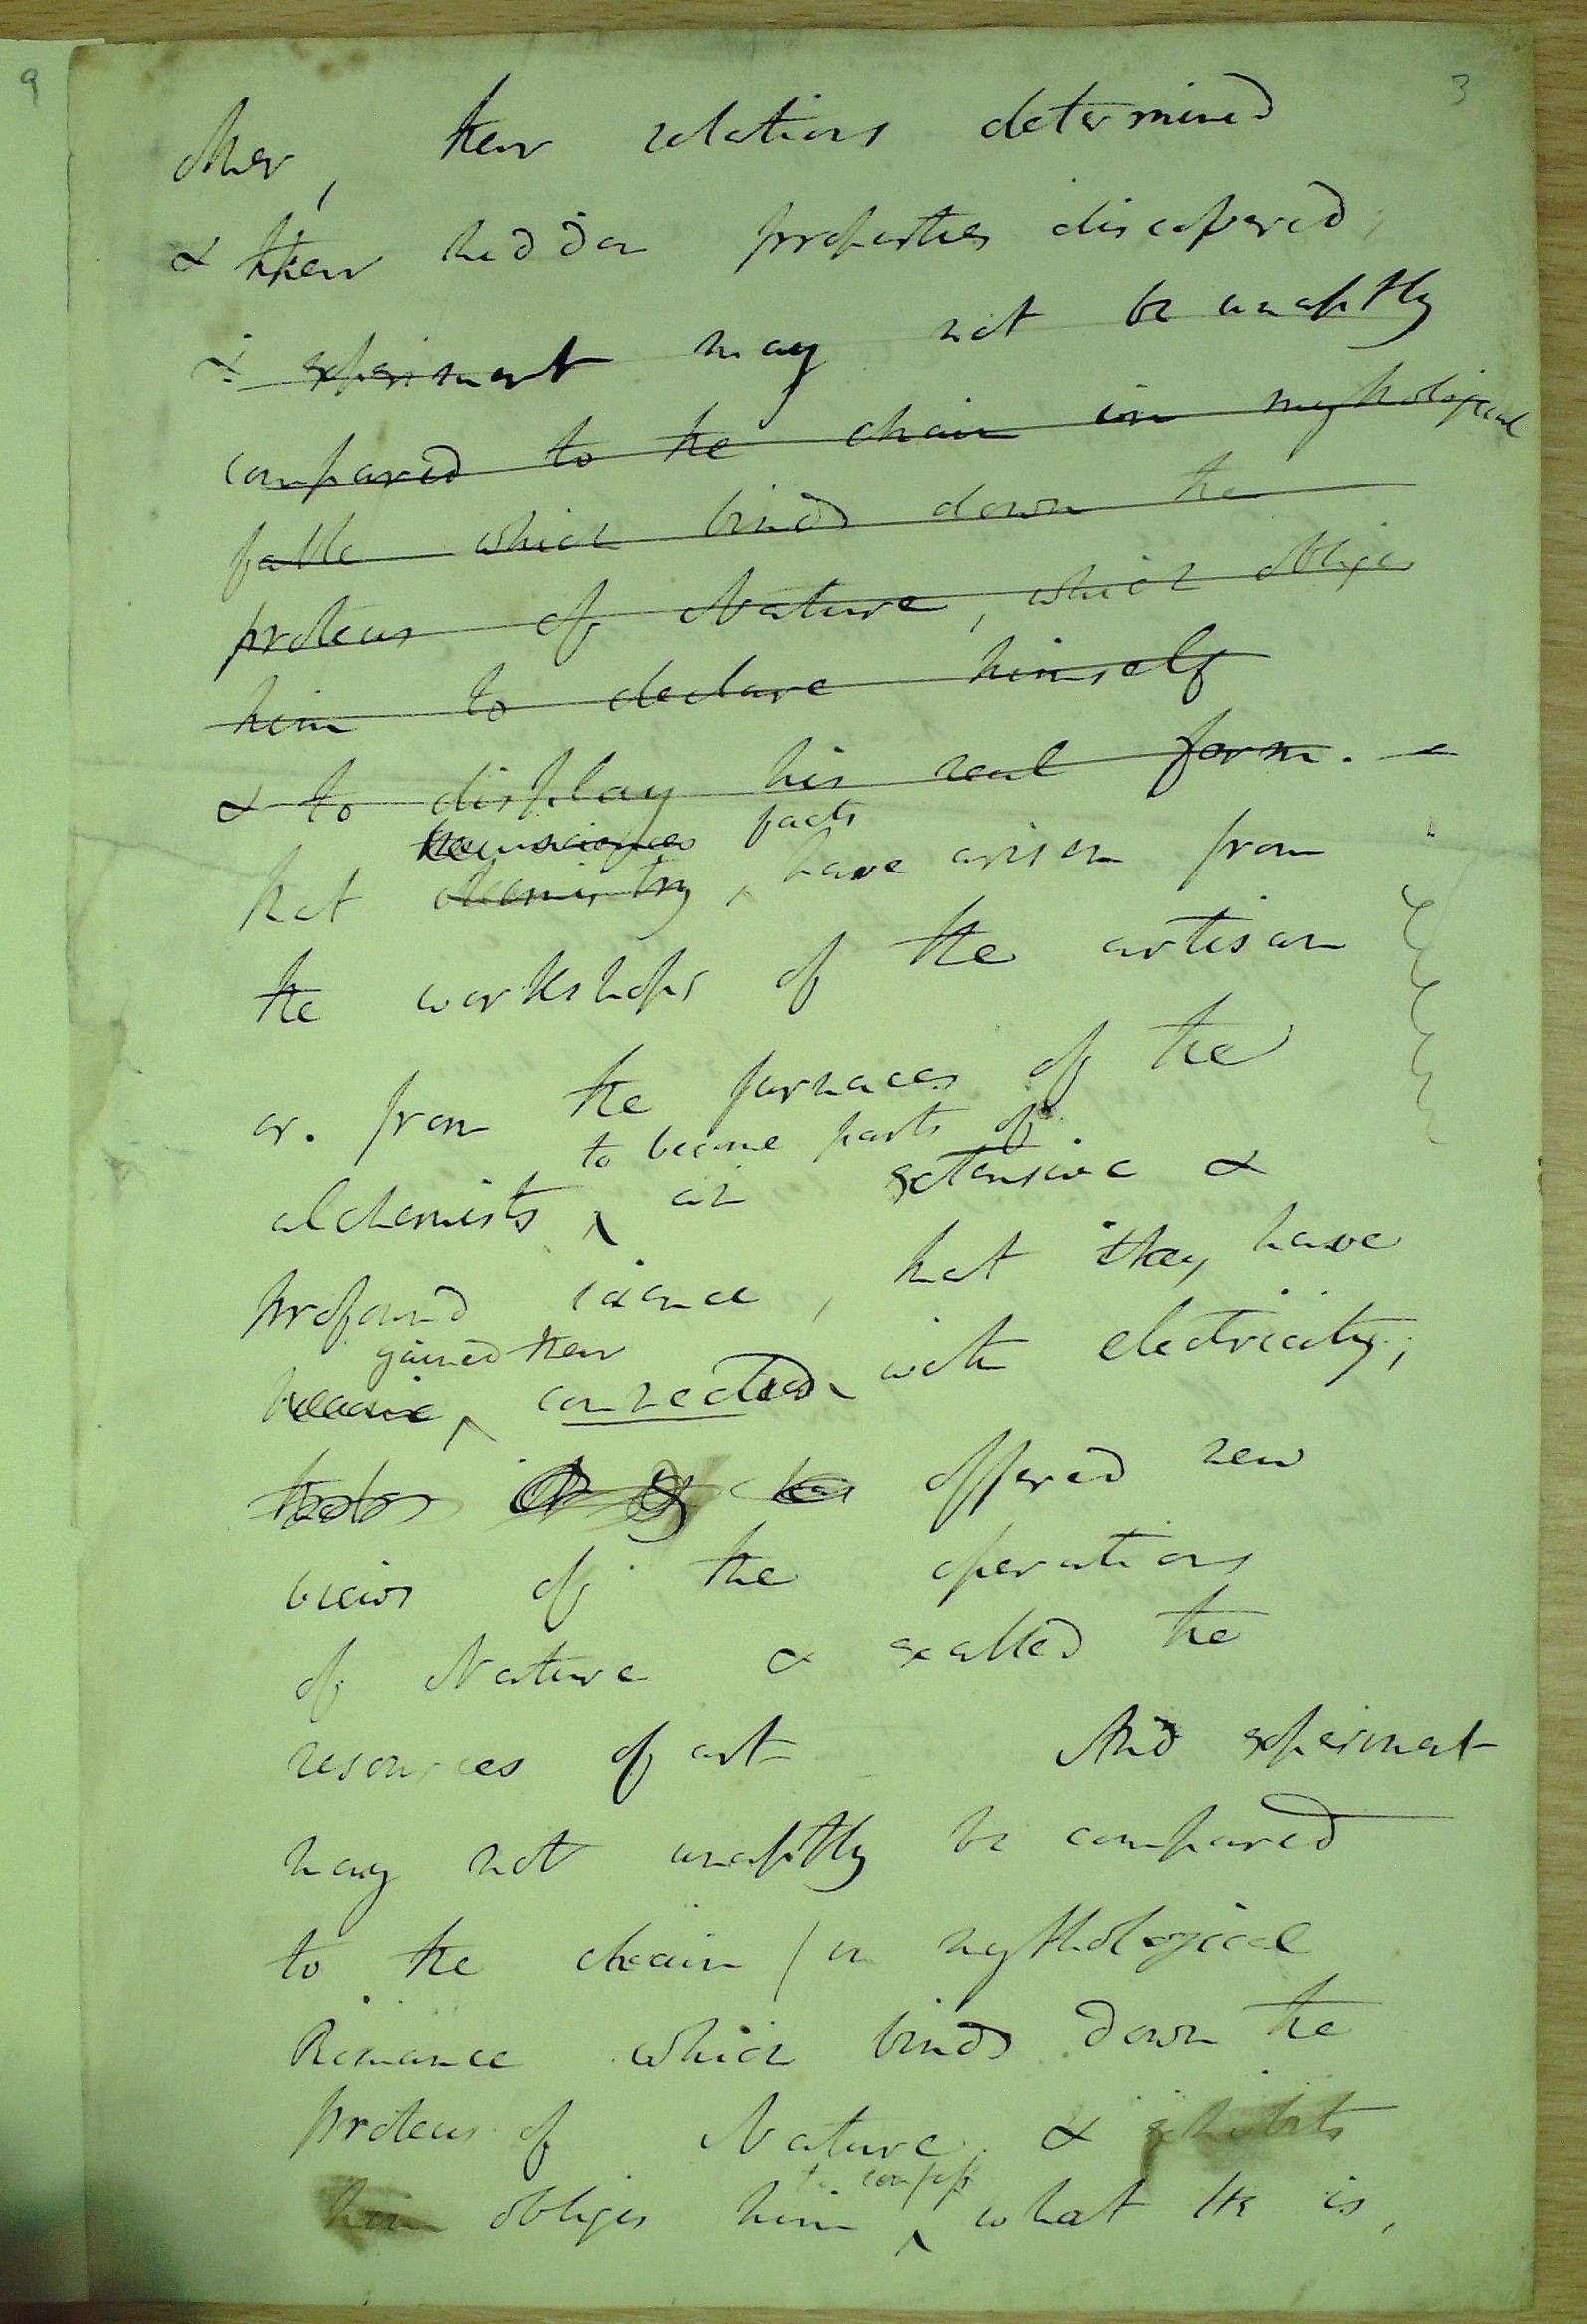 9
3
other, their relations determined
& their hidden properties discovered,
& experiment may not be unaptly
compared to the chain in mythological
fable which binds down the
proteus of Nature, which obliges
him to declare himself
& to display his real form. -
new sciences facts
that chemistry, have arisen from
the workshops of the artisan
or. from the furnaces of the
to become parts of
alchemists an extensive &
profound science, that they have
gained their
became connected with electricity;
has offered new
views of the operations
of Nature & exalted the
resources of art And experiment
may not unaptly be compared
to the chain (in mythological
Romance which binds down the
Proteus of Nature & exhibits
to confess
him obliges him what He is,